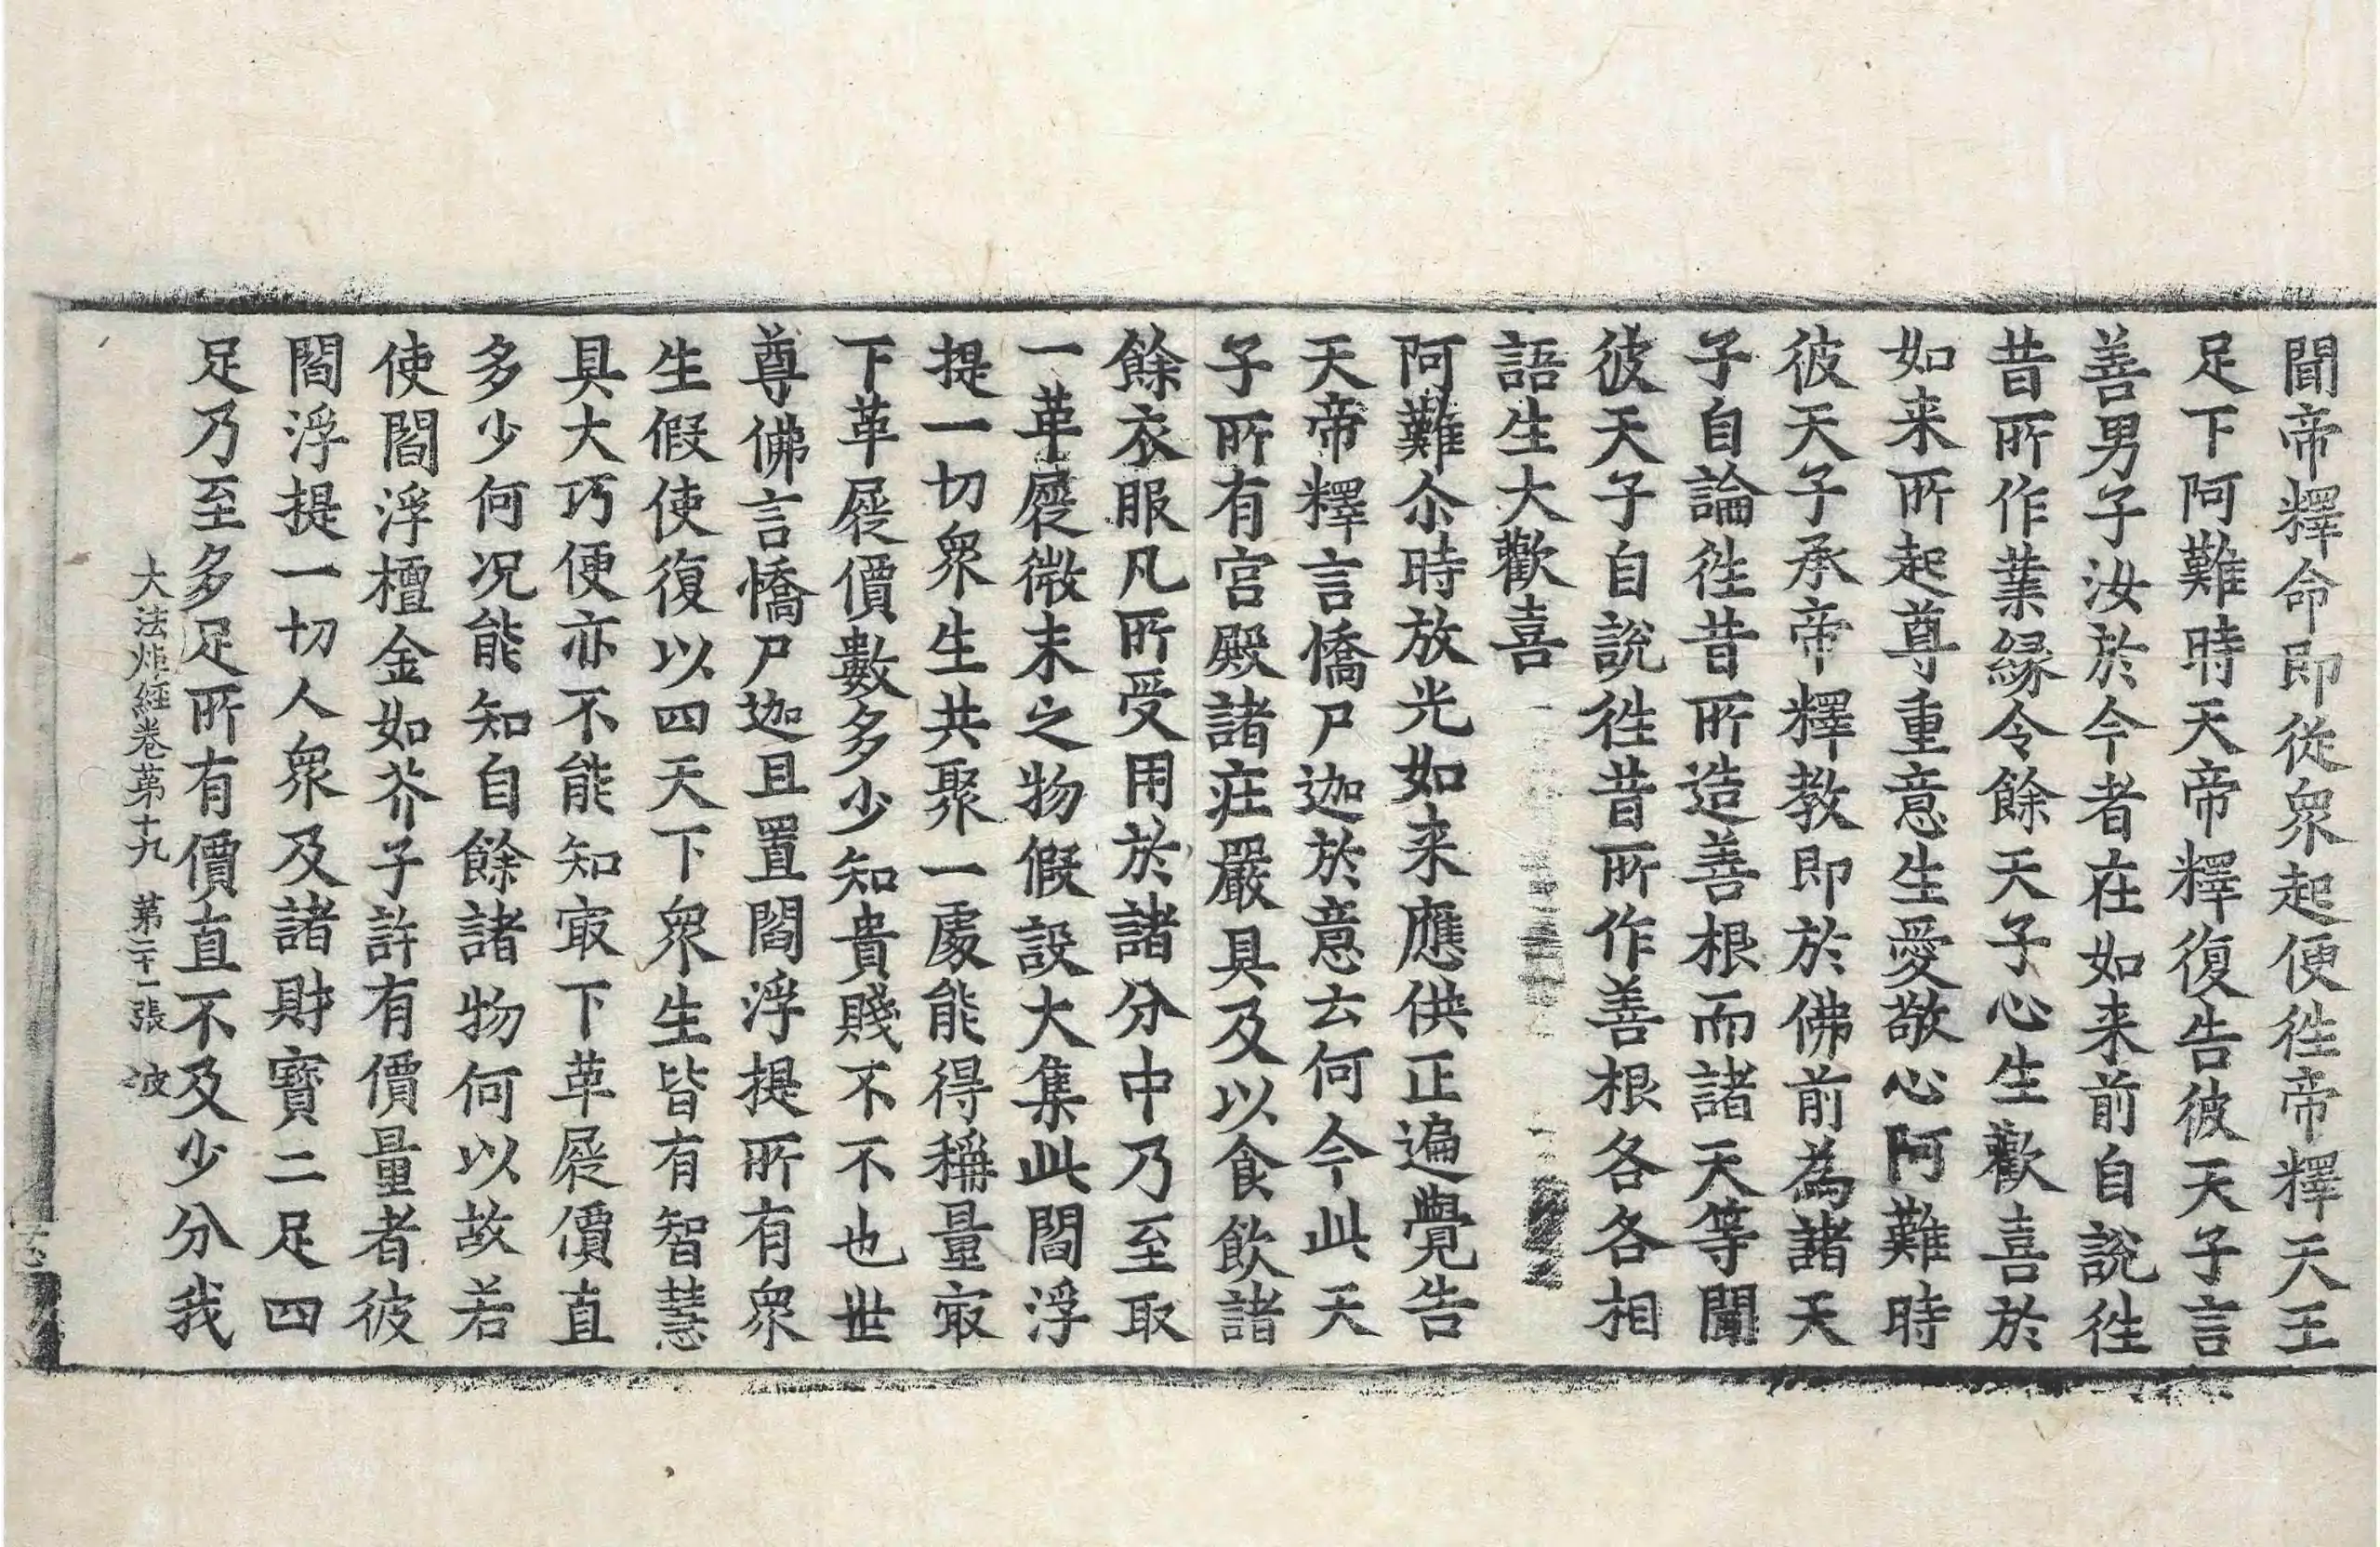 聞帝釋命即從衆起便徃帝釋天王
足下阿難時天帝釋復告彼天子言
善男子汝於今者在如来前自說徃
昔所作業緣令餘天子心生歡喜於
如来所起尊重意生愛敬心阿難時
彼天子承帝釋教即於佛前為諸天
子自論徃昔所造善根而諸天等聞
彼天子自說徃昔所作善根各各相
語生大歡喜
阿難尒時放光如来應供正遍覺告
天帝釋言憍尸迦於意云何今此天
子所有宫殿諸莊嚴具及以食飲諸
餘衣服凡所受用於諸分中乃至取
一革屣微末之物假設大集此閻浮
提一切衆生共聚一處能得稱量㝡
下革屣價數多少知貴賤不不也世
尊佛言憍尸迦且置閻浮提所有衆
生假使復以四天下衆生皆有智慧
具大巧便亦不能知㝡下革屣價直
多少何况能知自餘諸物何以故若
使閻浮檀金如芥子許有價量者彼
閻浮提一切人衆及諸財寶二足四
足乃至多足所有價直不及少分我
大法炬經卷第十九 第二十一張 波